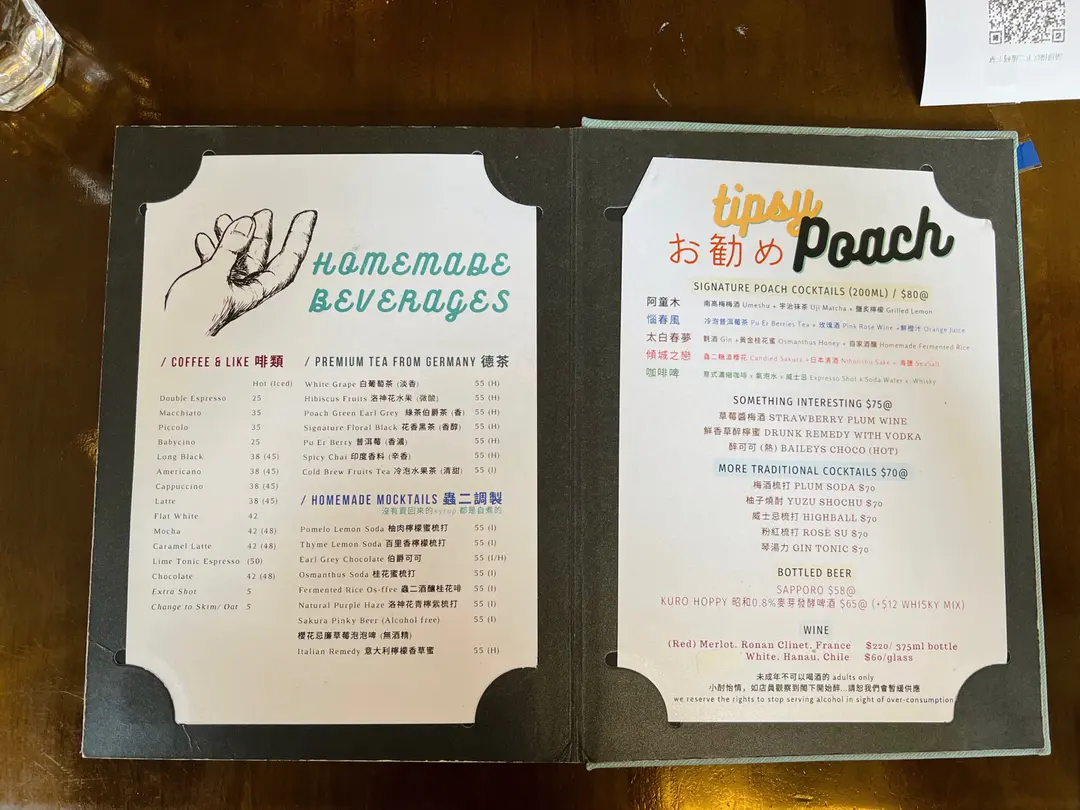 HOMEMADE
BEVERAGES
/ COFFEE & LIKE 啡類
Hot (Iced)
Double Espresso 25
Macchiato 35
Piccolo 35
Babycino 25
Long Black 38 (45)
Americano 38 (45)
Cappuccino 38 (45)
Latte 38 (45)
Flat White 42
Mocha 42 (48)
Caramel Latte 42 (48)
Lime Tonic Espresso (50)
Chocolate 42 (48)
Extra Shot 5
Change to Skim/ Oat 5
/ PREMIUM TEA FROM GERMANY 德茶
White Grape 白葡萄茶 (淡香) 55 (H)
Hibiscus Fruits 洛神花水果 (微酸) 55 (H)
Poach Green Earl Grey 綠茶伯爵茶 (香) 55 (H)
Signature Floral Black 花香黑茶 (香醇) 55 (H)
Pu Er Berry 普洱莓 (香濃) 55 (H)
Spicy Chai 印度香料 (辛香) 55 (H)
Cold Brew Fruits Tea 冷泡水果茶 (清甜) 55 (I)
/ HOMEMADE MOCKTAILS 蟲二調製
沒有買回來的syrup 都是自煮的
Pomelo Lemon Soda 柚肉檸檬蜜梳打 55 (I)
Thyme Lemon Soda 百里香檸檬梳打 55 (I)
Earl Grey Chocolate 伯爵可可 55 (I/H)
Osmanthus Soda 桂花蜜梳打 55 (I)
Fermented Rice Os-ffee 蟲二酒釀桂花啡 55 (I)
Natural Purple Haze 洛神花青檸紫梳打 55 (I)
Sakura Pinky Beer (Alcohol free) 55 (I)
櫻花忌廉草莓泡泡啤 (無酒精)
Italian Remedy 意大利檸檬香草蜜 55 (H)
tipsy
お勧め Poach
SIGNATURE POACH COCKTAILS (200ML) / $80@
阿童木 南高梅梅酒 Umeshu + 宇治抹茶 Uji Matcha + 鹽炙檸檬 Grilled Lemon
惱春風 冷泡普洱莓茶 Pu Er Berries Tea + 玫瑰酒 Pink Rose Wine +鮮橙汁 Orange Juice
太白春夢 氈酒 Gin +黃金桂花蜜 Osmanthus Honey + 自家酒釀 Homemade Fermented Rice
傾城之戀 蟲二糖漬櫻花 Candied Sakura +日本清酒 Nihonshu Sake + 海鹽 SeaSalt
咖啡啤 意式濃縮咖啡 x 氣泡水 x 威士忌 Expresso Shot x Soda Water x Whisky
SOMETHING INTERESTING $75@
草莓醬梅酒 STRAWBERRY PLUM WINE
鮮香草醉檸蜜 DRUNK REMEDY WITH VODKA
醉可可 (熱) BAILEYS CHOCO (HOT)
MORE TRADITIONAL COCKTAILS $70@
梅酒梳打 PLUM SODA $70
柚子燒酎 YUZU SHOCHU $70
威士忌梳打 HIGHBALL $70
粉紅梳打 ROSE SU $70
琴湯力 GIN TONIC $70
BOTTLED BEER
SAPPORO $58@
KURO HOPPY 昭和0.8%麥芽發酵啤酒 $65@ (+$12 WHISKY MIX)
WINE
(Red) Merlot. Ronan Clinet. France $220/ 375ml bottle
White. Hanau. Chile $60/glass
未成年不可以喝酒的 adults only
小酎怡情，如店員觀察到閣下開始醉...請恕我們會暫緩供應
we reserve the rights to stop serving alcohol in sight of over-consumption